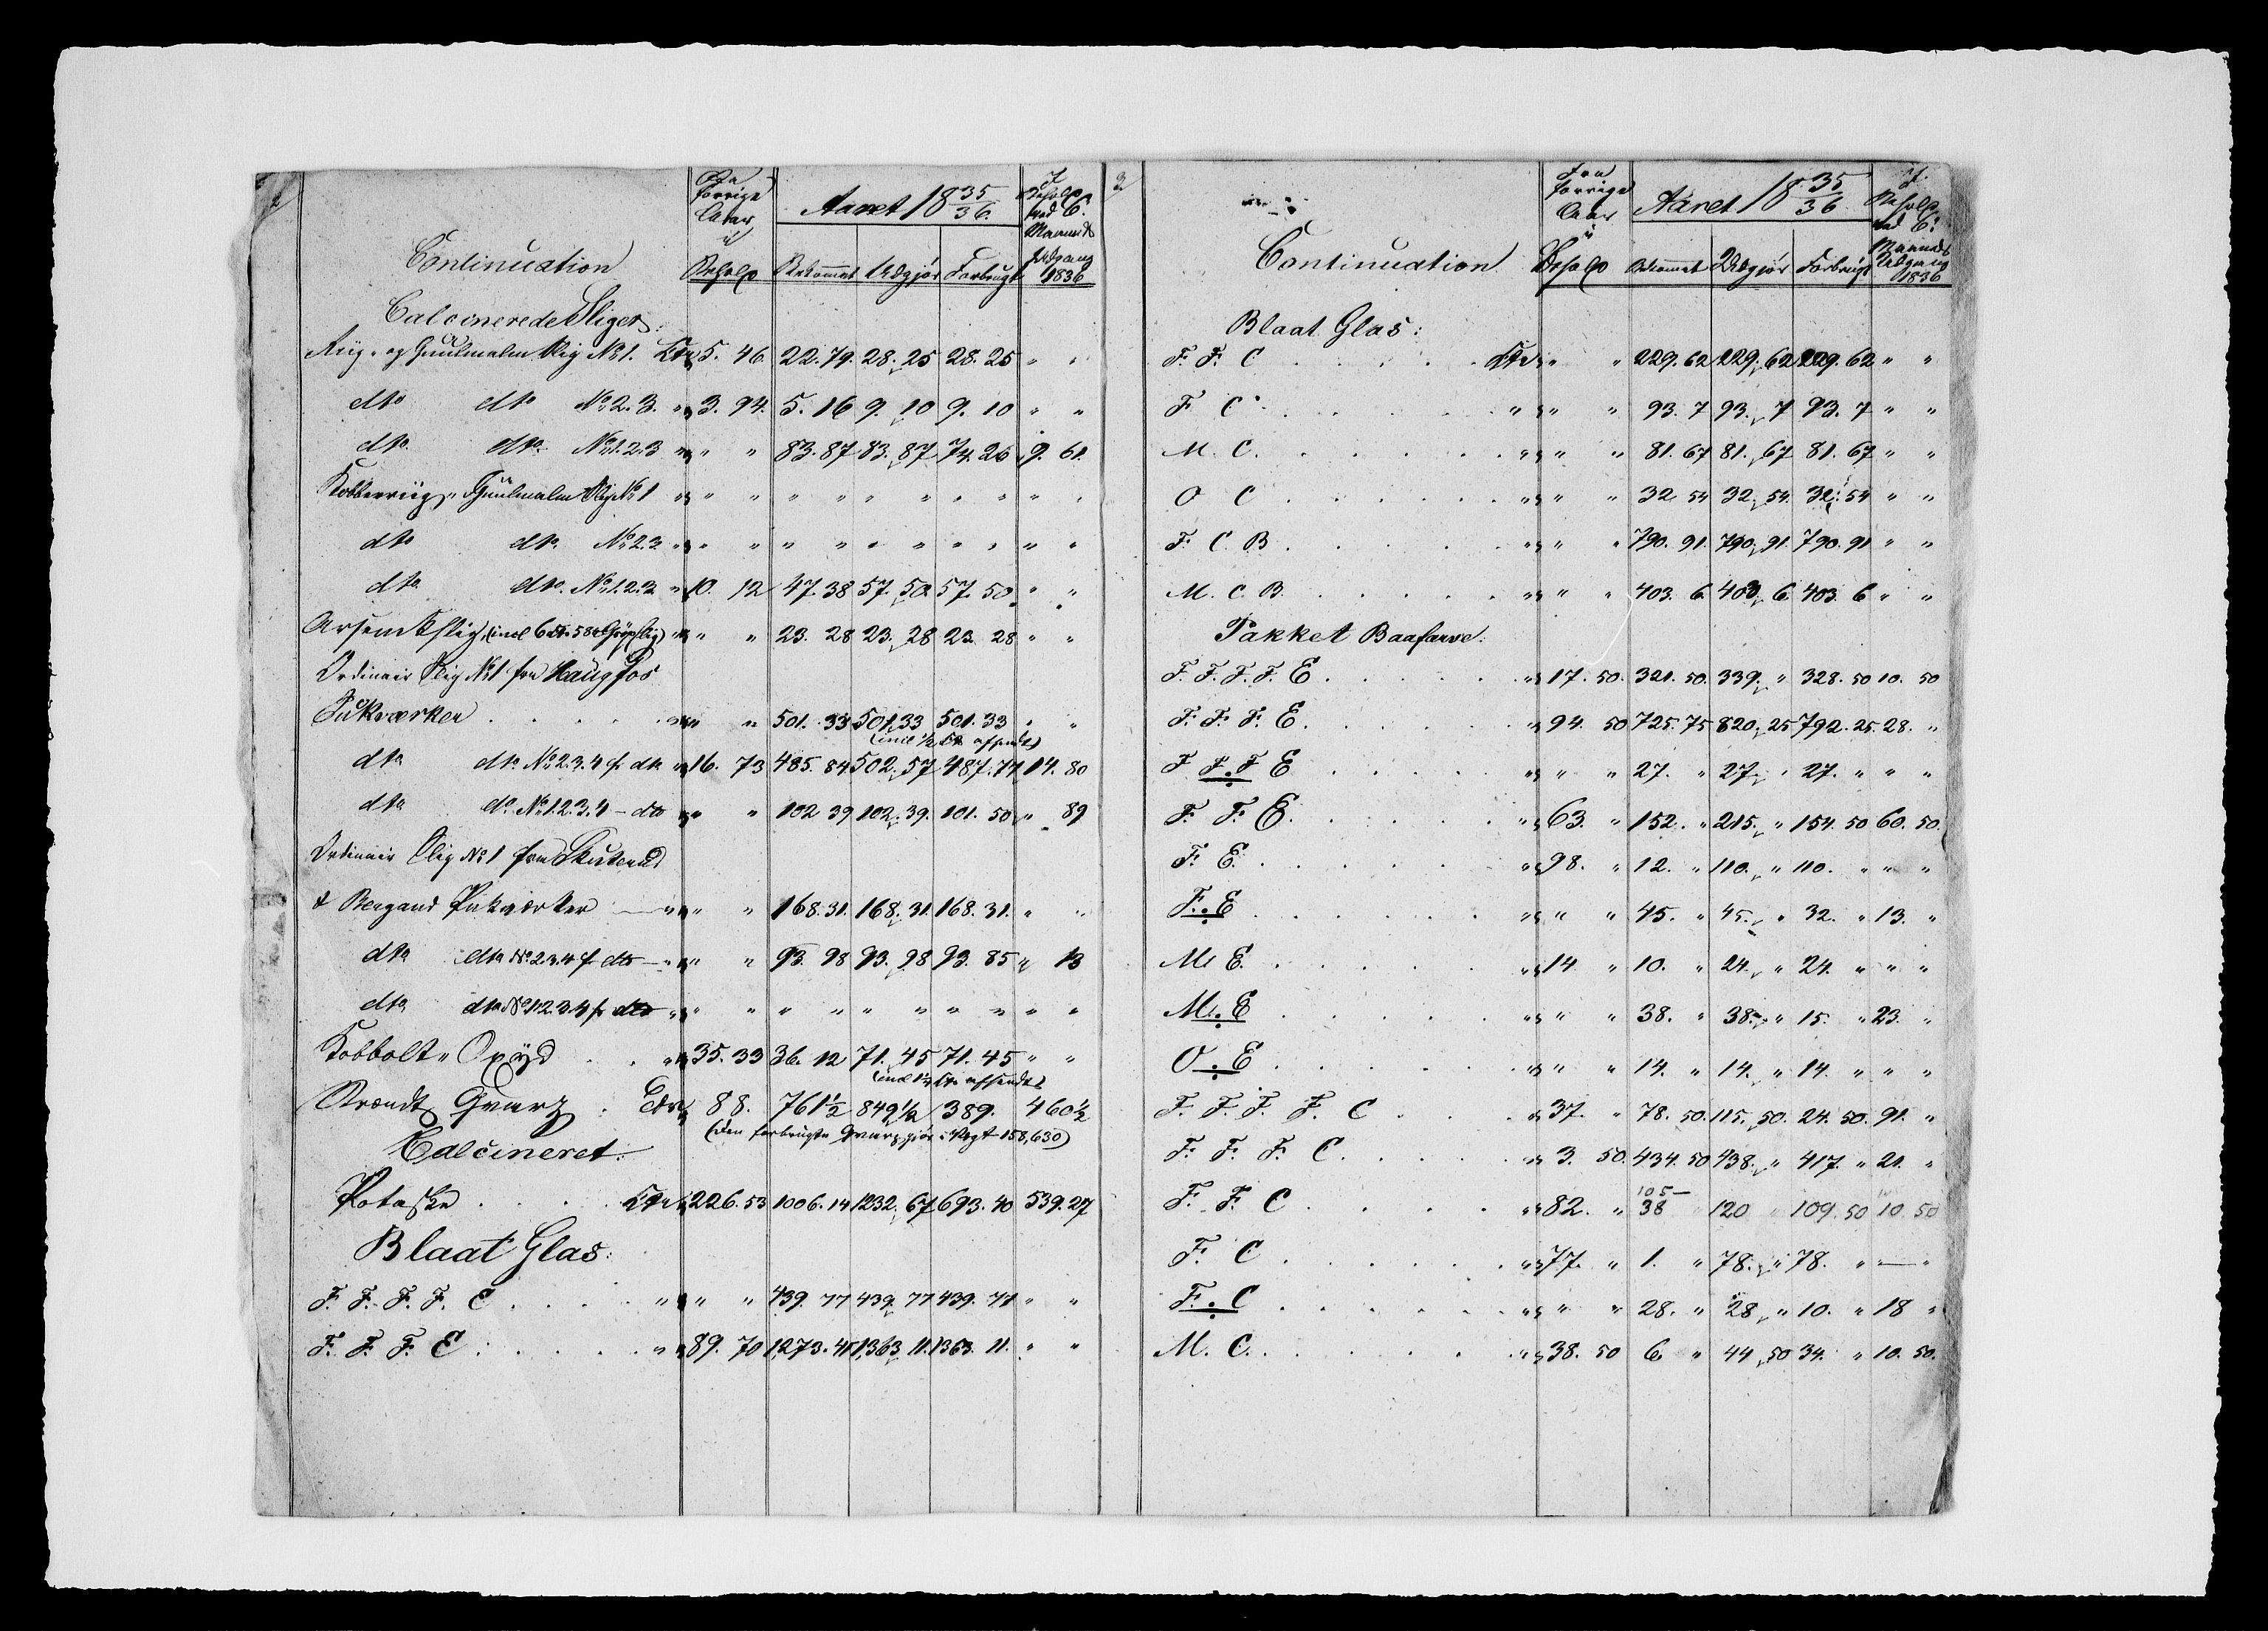 2
Fra forrige Aar i Behold
Aaret 18 35/36
I Behold ved 6. Maaneds Udgang 1836
Continuation
Bekommet Udgjør Forbrugt
Calcinerede Sliger:
Riig- og Guulmalm Slig No 1. Ctn 5. 46. 22. 79. 28. 25 28. 25 " "
dto dto No 2. 3. " 3. 94. 5. 16 9. 10 9. 10 " "
dto dto No 1. 2. 3 " " " 83. 87 83. 87 74. 26 9. 61.
Kobberriig- Guulmalm Slig No 1 " " " " " " " " " " "
dto dto No 2. 3 " " " " " " " " " " "
dto dto. No 1. 2. 3 " 10. 12 47. 38 57. 50 57. 50 " "
Arsenikslig (incl 6 Ct. 58 ) " " " 23. 28 23. 28 23. 28 " "
Ordinair Slig No 1 fra Haugfos
Pukværker . . . . " " " 501. 33 501. 33 501. 33 " "
(incl 1/2 Ctr afsendt)
dto dto No 2. 3. 4 fr dto " 16. 73 485. 84 502. 57 487. 77 14. 80
dto do No 1. 2. 3. 4 - dto " " " 102 39 102. 39. 101. 50 " 89
Ordinair Slig No 1 fra Skuterud
& Bergand Pukværker " " " 168. 31. 168. 31. 168. 31. " "
dto dto No 2. 3. 4 fr dto " " " 93. 98 93. 98 93. 85 " 13
dto dto No 1 2. 3. 4 fr dto " " " " " " " " " " "
Kobbolt- Oxÿd . . " 35. 33 36. 12 71. 45 71. 45 " "
(incl 1/2 Ctr afsendt)
Brændt Qvarz . 88. 761 1/2 849 1/2 389. 460 1/2
(den forbrugte Qvarz gjør i Vægt 158,630)
Calcineret:
Potaske . . . . Ctn 226. 53 1006. 14 1232. 67 693. 40 539. 27
Blaat Glas:
F. F. F. F. C . . . . " " " 439. 77 439. 77 439. 77 " "
F. F. F. C . . . . . " 89. 70 1,273. 41 1,363. 11. 1363. 11. " "
3
Fra forrige Aar i Behold
Aaret 18 35/36
I Behold ved 6: Maaneds Udgang 1836
Continuation
Bekommet Udgjør Forbrugt
Blaat Glas:
F. F. C . . . . . Ctn " " 229. 62 229. 62 229. 62 " "
F C . . . . . . " " " 93. 7 93. 7 93. 7 " "
M. C. . . . . . . " " " 81. 67 81. 67 81. 67 " "
O C . . . . . . " " " 32 54 32. 54. 32. 54 " "
F. C. B . . . . . " " " 790. 91. 790. 91. 790. 91 " "
M. C. B. . . . . . " " " 403. 6. 403. 6. 403. 6 " "
Pakket Blaafarve:
F. F. F. F. E . . . . . " 17. 50. 321. 50. 339. " 328. 50 10. 50
F. F. F. E . . . . . " 94. 50 725. 75 820. 25 792. 25. 28. "
F F. F E . . . . . " " " 27. " 27. " 27. " " "
F. F. E . . . . . " 63. " 152. " 215. " 154. 50 60. 50.
F. E. . . . . . " 98. " 12. " 110. " 110. " " "
F. E . . . . . . " " " 45. " 45. " 32. " 13. "
M. E. . . . . . " 14 " 10. " 24. " 24. " " "
M. E . . . . . " " " 38. " 38. " 15. " 23. "
O. E . . . . . " " " 14. " 14. " 14. " " "
F. F. F. F. C . . . " 37. " 78. 50. 115. 50. 24. 50. 91. "
F. F. F. C . . . . . " 3. 50. 434. 50 438. " 417. " 21. "
105 —
F. F. C . . . . " 82. " 38 " 120 " 109. 50 10 50
F. C . . . . . . " 77. " 1. " 78. " 78. " — "
F. C . . . . . . " " " 28. " 28. " 10. " 18 "
M. C. . . . . . . " 38. 50 6 " 44. 50 34. " 10. 50.